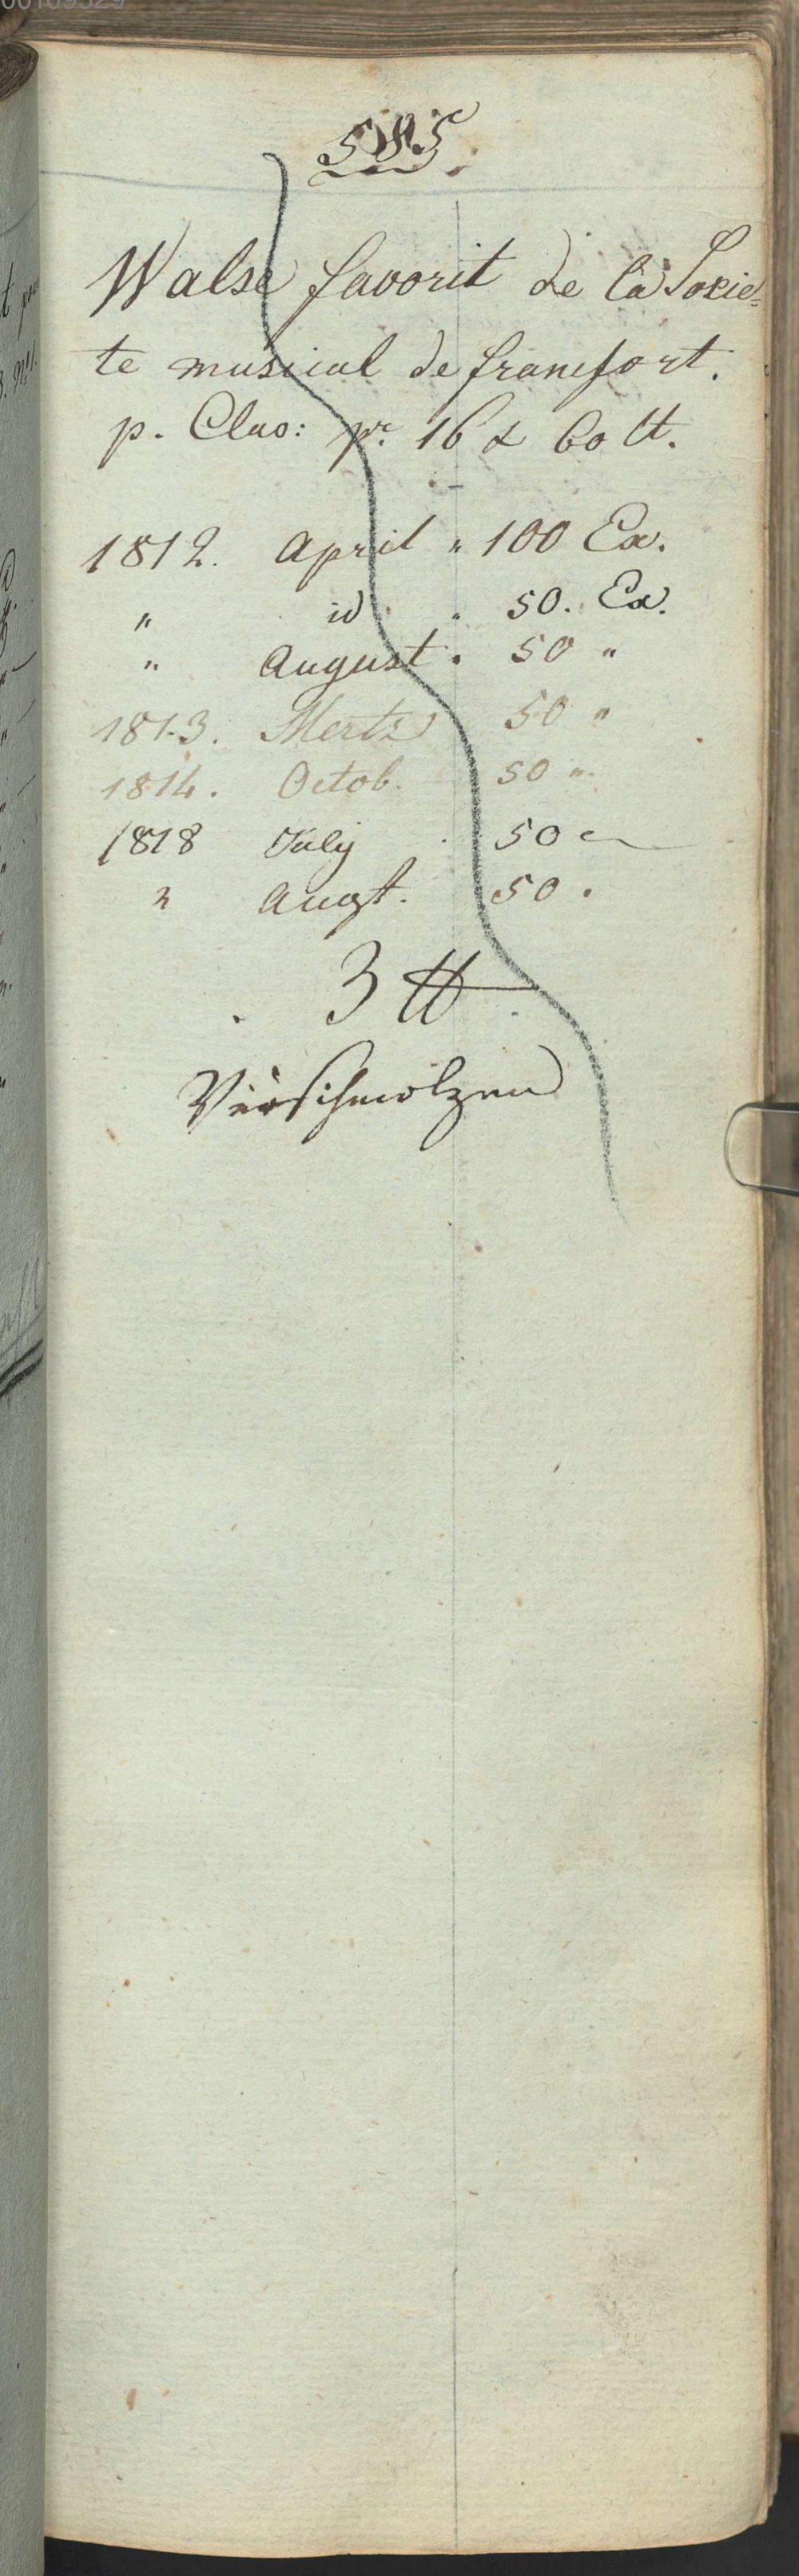 585.
Walse favorit de la Socie=
te musical de francfort.
p. Clav: pr. 16 x 60 ct.
1812. April " 100 Ex.
" id . 50. Ex.
" August . 50 "
1813. Mertz 50 "
1814. Octob. 50 "
1818 July . 50
" Augt. 50 .
3 ℔
Verschmolzen